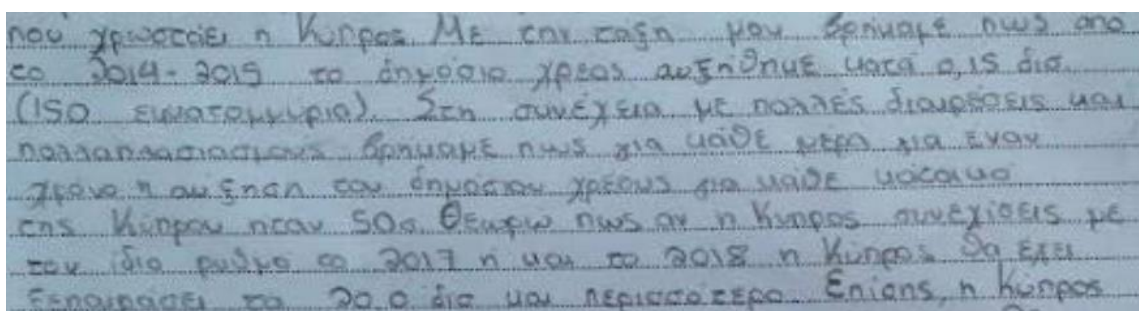 που χρωστάει η Κύπρος. Με την ταξη μου βρήκαμε πως απο
το 2014-2015 το δημόσιο χρεος αυξήθηκε κατά 0,15 δισ.
(150 εκκατομμύρια). Στη συνέχεια με πολλές διαιρέσεις και
πολλαπλασιασμους βρήκαμε πως για κάθε μερα για εναν
χρόνο η αυξηση του δημόσιου χρέους για κάθε κάτοικο
της Κύπρου ηταν 50σ. Θεωρω πως αν η Κυπρος συνεχίσεις με
τον ίδιο ρυθμο το 2017 ή και το 2018 η Κύπρος θα έχει
ξεπεράσει τα 20.0 δις και περισσότερο. Επίσης, η Κύπρος